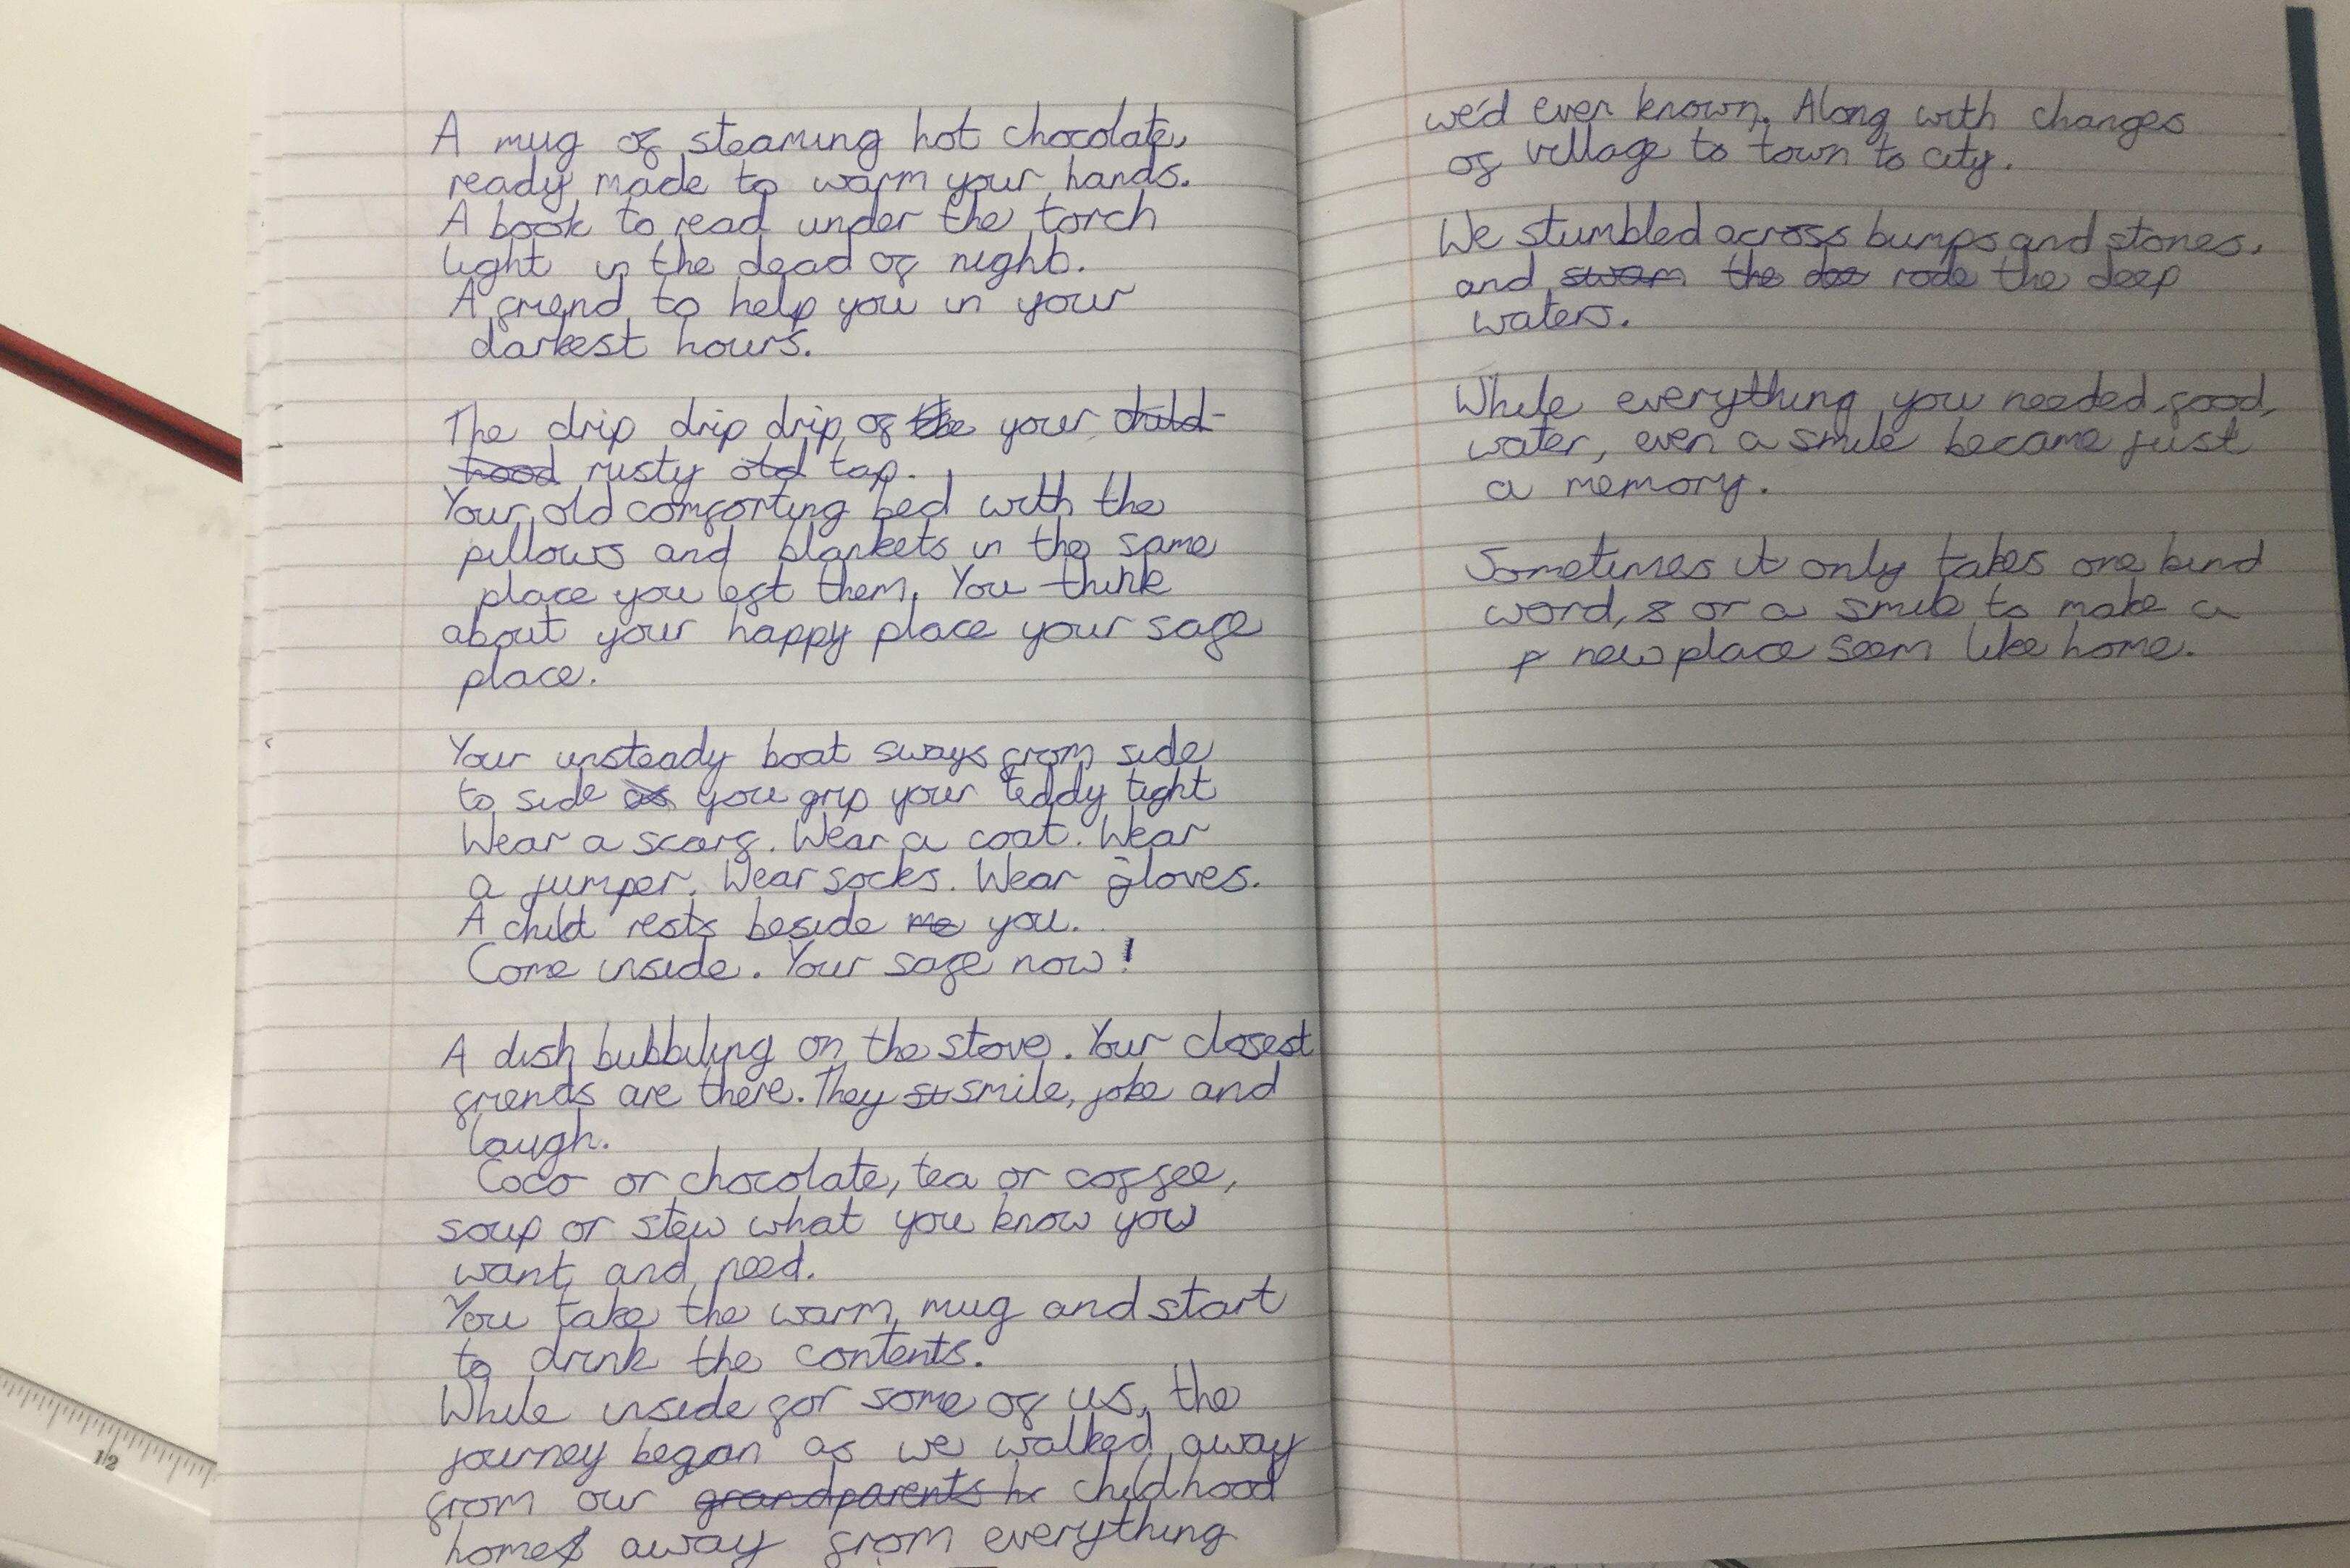 A mug of steaming hot chocolate,
ready made to warm your hands.
A book to read under the torch
light in the dead of night.
A friend to help you in your
darkest hours.
The drip drip drip of the your child-
hood rusty old tap.
Your old comforting bed with the
pillows and blankets in the same
place you left them. You think
about your happy place your safe
place.
Your unsteady boat sways from side
to side as you grip your teddy tight
Wear a scarf. Wear a coat. Wear
a jumper. Wear socks. Wear gloves.
A child rests beside me you.
Come inside. Your safe now!
A dish bubbiling on the stove. Your closest
friends are there. They st smile, joke and
laugh.
Coco or chocolate, tea or coffee,
soup or stew what you know you
want and need.
You take the warm mug and start
to drink the contents.
While inside for some of us, the
journey began as we walked away
from our grandparents childhood
homes away from everything
we'd ever known. Along with changes
of village to town to city.
We stumbled across bumps and stones,
and swam the dee rode the deep
waters.
While everything you needed, food,
water, even a smile became just
a memory.
Sometimes it only takes one kind
word, s or a smile to make a
p new place seem like home.
1/2